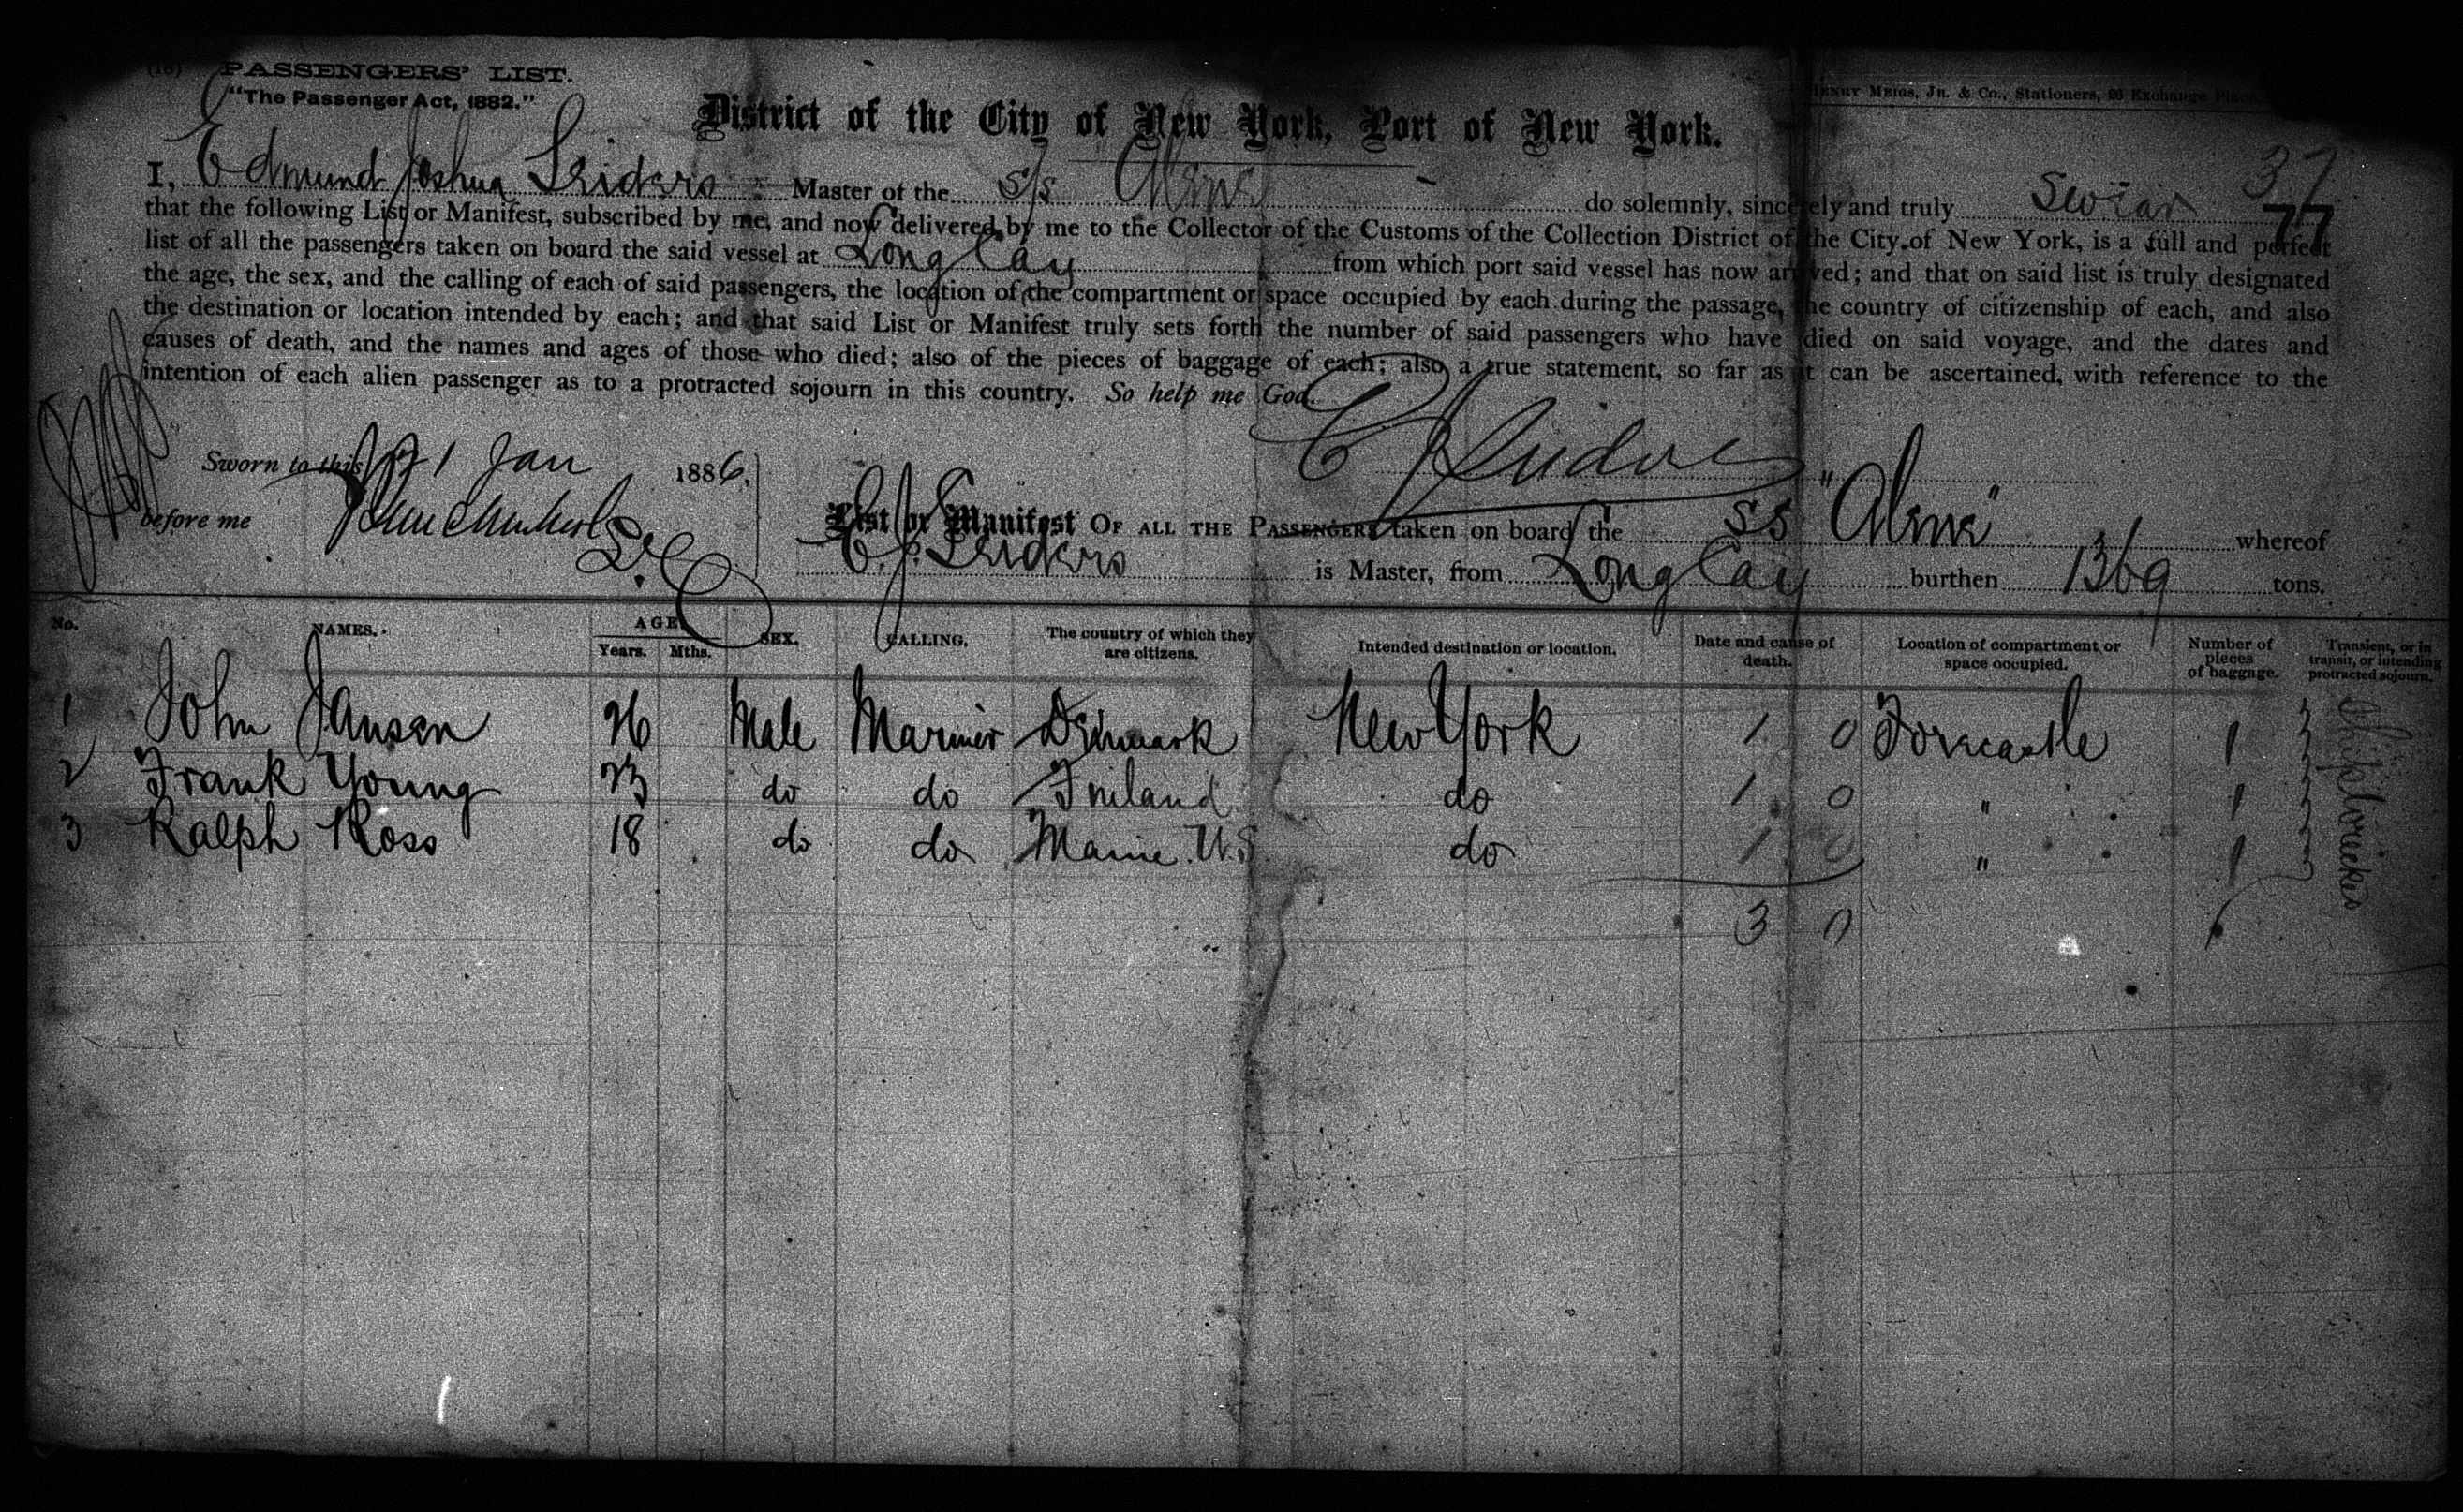 PASSENGERS' LIST.
"The Passenger Act, 1882."
HENRY MEIGS, JR. & CO., Stationers, 26 Exchange Place,
District of the City of New York, Port of New York.
37
77
I, Edmund Joshua Master of the S/S do solemnly, sincerely and truly swear
that the following List or Manifest, subscribed by me, and now delivered by me to the Collector of the Customs of the Collection District of the City of New York, is a full and perfect
list of all the passengers taken on board the said vessel at Long Cay from which port said vessel has now arrived; and that on said list is truly designated
the age, the sex, and the calling of each of said passengers, the location of the compartment or space occupied by each during the passage, the country of citizenship of each, and also
the destination or location intended by each; and that said List or Manifest truly sets forth the number of said passengers who have died on said voyage, and the dates and
causes of death, and the names and ages of those who died; also of the pieces of baggage of each; also a true statement, so far as it can be ascertained, with reference to the
intention of each alien passenger as to a protracted sojourn in this country. So help me God.
Sworn to this 21 Jan 1886,
before me
List or Manifest OF ALL THE PASSENGERS taken on board the SS whereof
E. J. is Master, from Long Cay burthen 1369 tons.
No. NAMES. AGE SEX. CALLING. The country of which they are citizens. Intended destination or location. Date and cause of death. Location of compartment or space occupied. Number of pieces of baggage. Transient, or in transit, or intending protracted sojourn.
Years. Mths.
1 John Jansen 26 Male Mariner Denmark New York 1 0 Forecastle 1
2 Frank Young 23 do do Finland do 1 0 " 1
3 Ralph Ross 18 do do Maine U.S. do 1 0 " 1
3 0